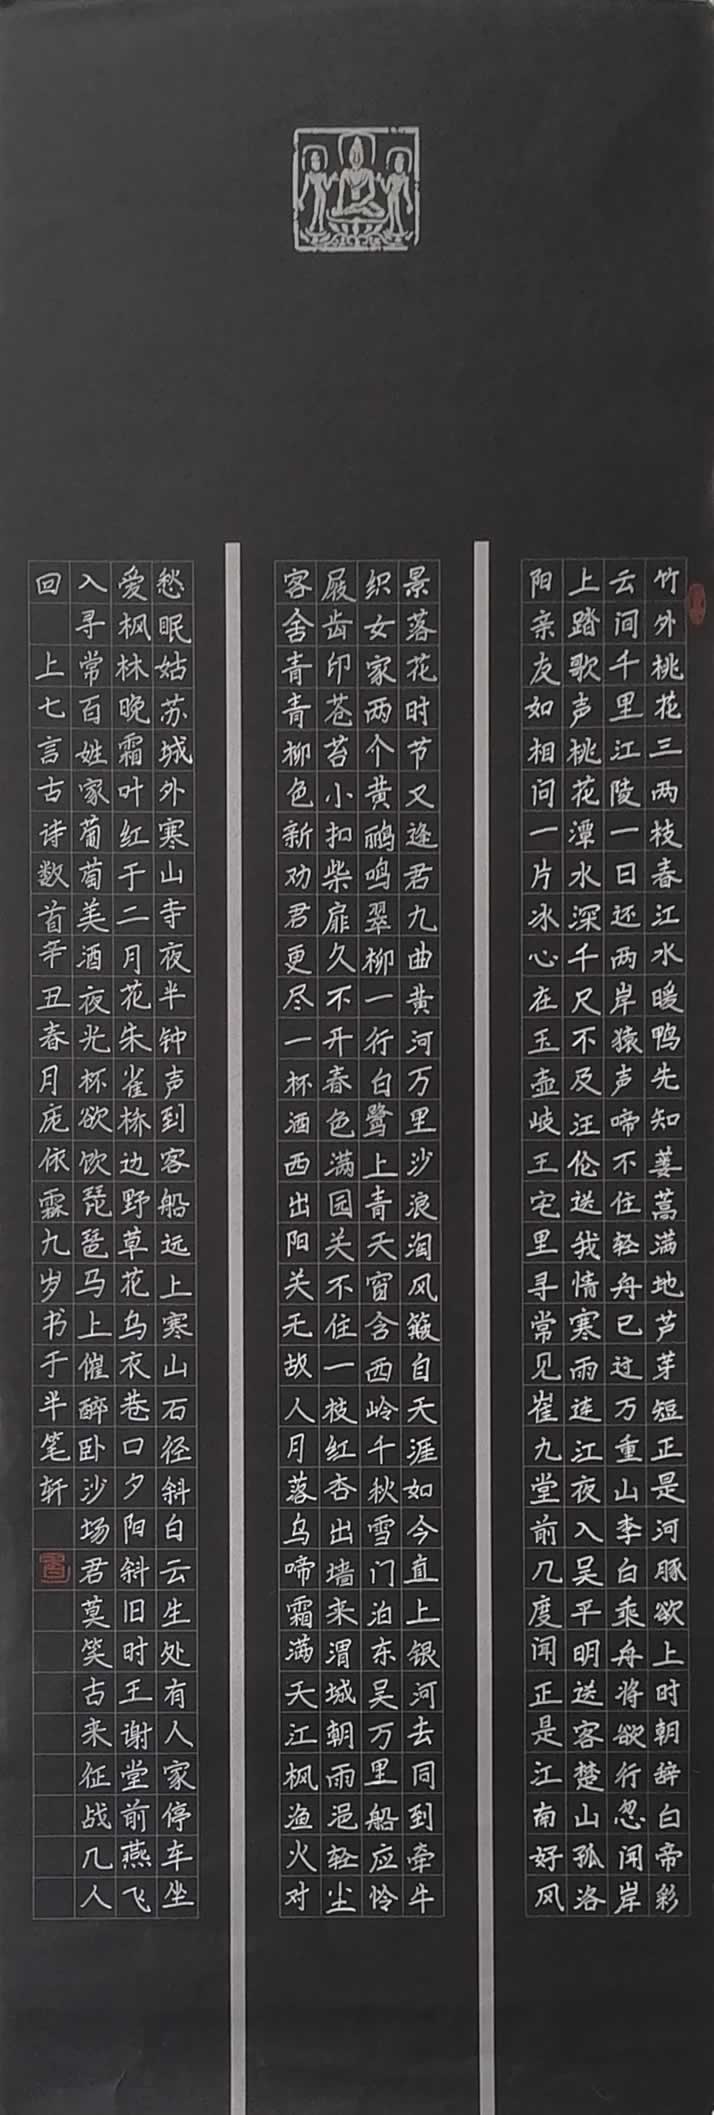 竹外桃花三两枝春江水暖鸭先知蒌蒿满地芦芽短正是河豚欲上时朝辞白帝彩
云间千里江陵一日还两岸猿声啼不住轻舟已过万重山李白乘舟将欲行忽闻岸
上踏歌声桃花潭水深千尺不及汪伦送我情寒雨连江夜入吴平明送客楚山孤洛
阳亲友如相问一片冰心在玉壶岐王宅里寻常见崔九堂前几度闻正是江南好风
景落花时节又逢君九曲黄河万里沙浪淘风簸自天涯如今直上银河去同到牵牛
织女家两个黄鹂鸣翠柳一行白鹭上青天窗含西岭千秋雪门泊东吴万里船应怜
屐齿印苍苔小扣柴扉久不开春色满园关不住一枝红杏出墙来渭城朝雨浥轻尘
客舍青青柳色新劝君更尽一杯酒西出阳关无故人月落乌啼霜满天江枫渔火对
愁眠姑苏城外寒山寺夜半钟声到客船远上寒山石径斜白云生处有人家停车坐
爱枫林晚霜叶红于二月花朱雀桥边野草花乌衣巷口夕阳斜旧时王谢堂前燕飞
入寻常百姓家葡萄美酒夜光杯欲饮琵琶马上催醉卧沙场君莫笑古来征战几人
回 上七言古诗数首辛丑春月庞依霖九岁书于半笔轩